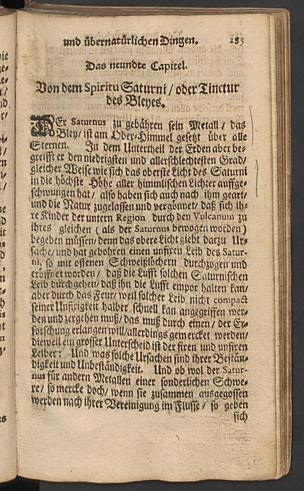 und übernatürlichen Dingen. 285
Das neundte Capitel.
Von dem Spiritu Saturni / oder Tinctur
des Bleyes.
Er Saturnus zu gebähren sein Metall / das
Bley / ist am Ober-Himmel gesetzt über alle
Sternen. In dem Untertheil der Erden aber be-
greifft er den niedrigsten und allerschlechtesten Grad /
gleicher Weise wie sich das oberste Licht des Saturni
in die höchste Höhe aller himmlischen Lichter auffge-
schwungen hat / also haben sich auch nach ihm geart /
und die Natur zugelassen und vergönnet / daß sich ih-
re Kinder der untern Region durch den Vulcanum zu
ihres gleichen (als der Saturnus bewogen worden)
begeben müssen / denn das obere Licht giebt darzu Ur-
sache / und hat gebohren einen unfixen Leib des Satur-
ni, so mit offenen Schweißlöchern durchzogen und
eröffnet worden / daß die Lufft solchen Saturnischen
Leib durchgehen / daß ihn die Lufft empor halten kan /
aber durch das Feur / weil solcher Leib nicht compact
seiner Unfixigkeit halber schnell kan angegriffen wer-
den und zergehen muß / das muß durch einen / der Er-
forschung erlangen will / allerdings gemercket werden /
dieweil ein grosser Unterscheid ist der fixen und unfixen
Leiber: Und was solche Ursachen sind ihrer Bestän-
digkeit und Unbeständigkeit. Und ob wol der Satur-
nus für andern Metallen einer sonderlichen Schwe-
re / so mercke doch / wenn sie zusammen ausgegossen
werden nach ihrer Vereinigung im Flusse / so geben
sich